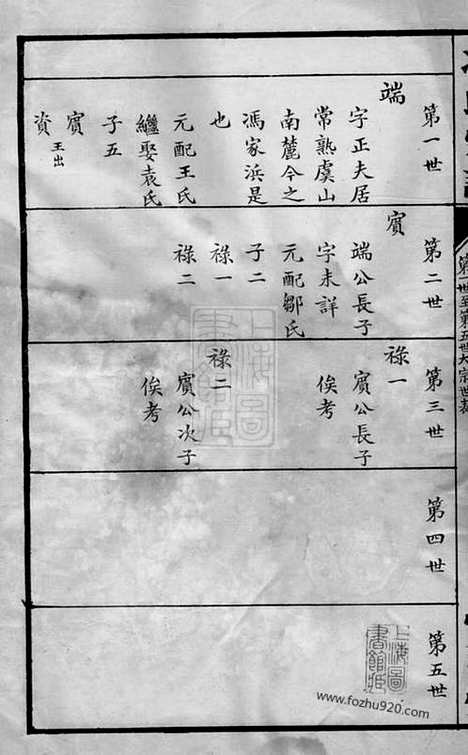 第一世
端
字正夫居
常熟虞山
南麓今之
馮家浜是
也
元配王氏
繼娶袁氏
子五
賓
資 王出
第二世
賓
端公長子
字未詳
元配鄒氏
子二
祿一
祿二
第三世
祿一
賓公長子
俟考
祿二
賓公次子
俟考
第四世
第五世
第一世至第五世大宗世表
上海圖
書館藏
www.fozhu920.com